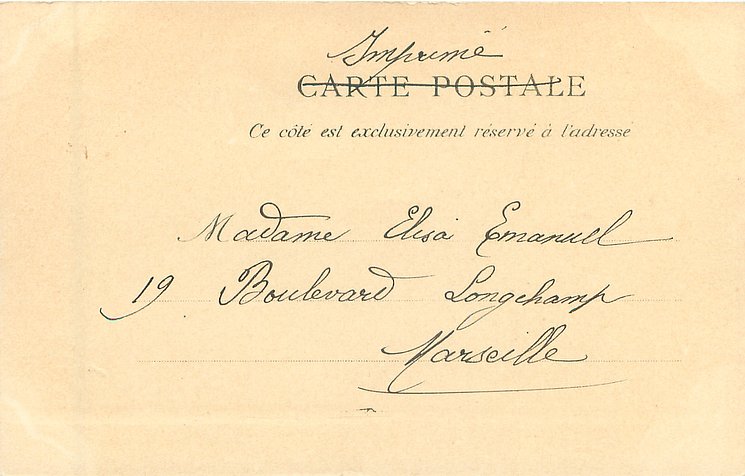 Imprimé
CARTE POSTALE
Ce côté est exclusivement réservé à l'adresse
Madame Elisa Emanuel
19 Boulevard Longchamp
Marseille